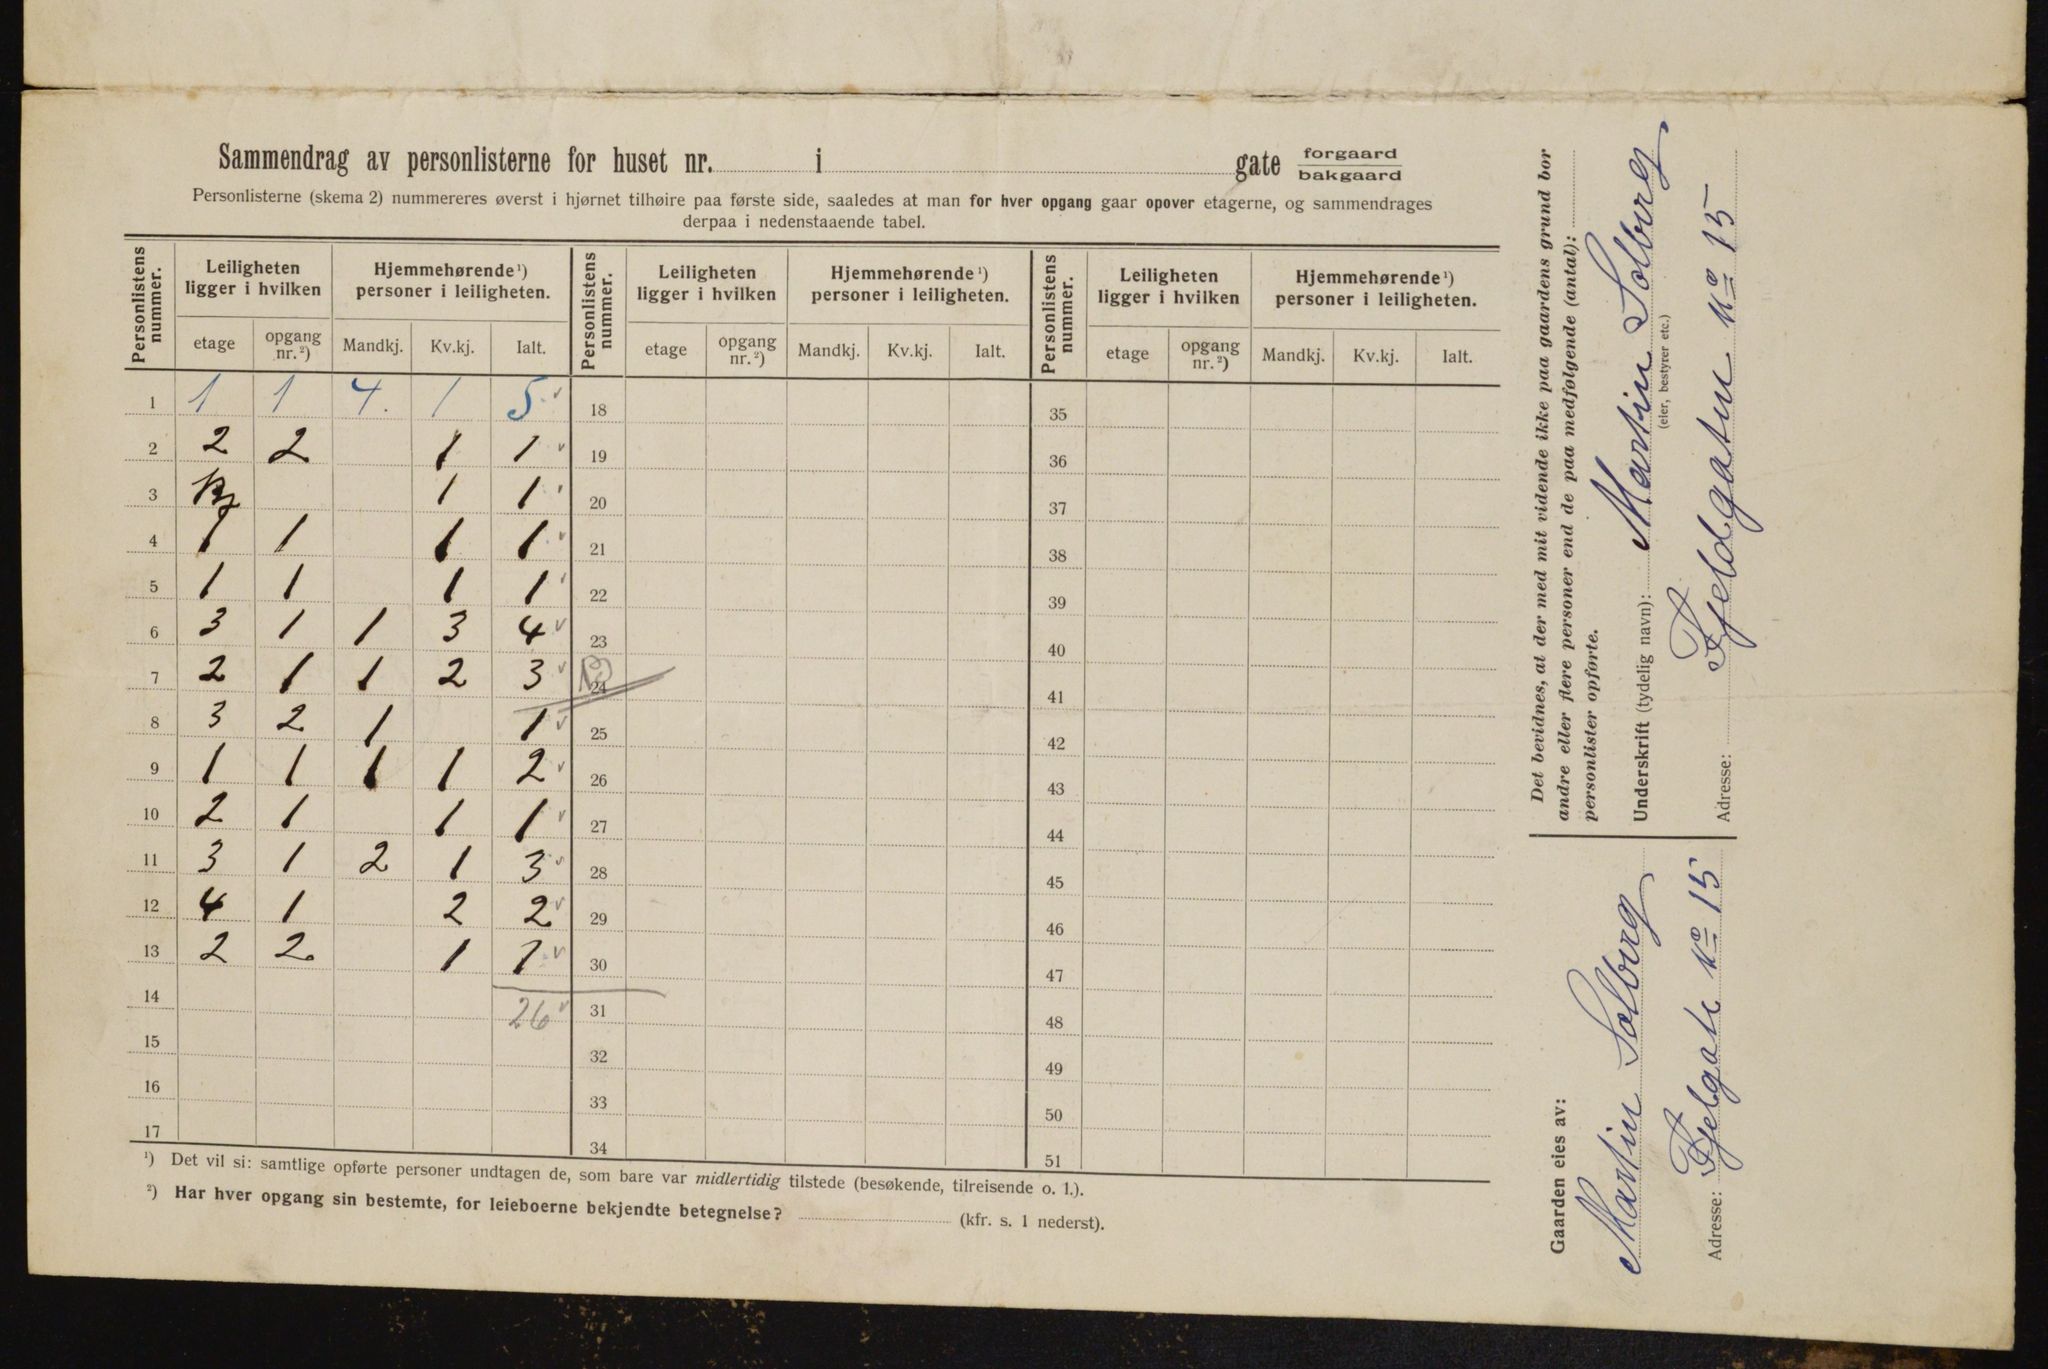 Sammendrag av personlisterne for huset nr. i gate forgaard bakgaard
Personlisterne (skema 2) nummereres øverst i hjørnet tilhøire paa første side, saaledes at man for hver opgang gaar opover etagerne, og sammendrages
derpaa i nedenstaaende tabel.
Personlistens nummer. Leiligheten ligger i hvilken Hjemmehørende ¹) personer i leiligheten. Personlistens nummer. Leiligheten ligger i hvilken Hjemmehørende ¹) personer i leiligheten. Personlistens nummer. Leiligheten ligger i hvilken Hjemmehørende ¹) personer i leiligheten.
etage opgang nr. ²) Mandkj. Kv.kj. Ialt. etage opgang nr. ²) Mandkj. Kv.kj. Ialt. etage opgang nr. ²) Mandkj. Kv.kj. Ialt.
1 1 1 4. 1 5 18 35
2 2 2 1 1 19 36
3 1 1 20 37
4 1 1 1 1 21 38
5 1 1 1 1 22 39
6 3 1 1 3 4 23 40
7 2 1 1 2 3 24 41
8 3 2 1 1 25 42
9 1 1 1 1 2 26 43
10 2 1 1 1 27 44
11 3 1 2 1 3 28 45
12 4 1 2 2 29 46
13 2 2 1 1 30 47
14 26 31 48
15 32 49
16 33 50
17 34 51
¹) Det vil si: samtlige opførte personer undtagen de, som bare var midlertidig tilstede (besøkende, tilreisende o. l.).
²) Har hver opgang sin bestemte, for leieboerne bekjendte betegnelse? (kfr. s. 1 nederst).
Det bevidnes, at der med mit vidende ikke paa gaardens grund bor
andre eller flere personer end de paa medfølgende (antal):
personlister opførte.
Underskrift (tydelig navn): Martin Solberg
(eier, bestyrer etc.)
Adresse: Fjeldgaten No 15
Gaarden eies av:
Martin Solberg
Adresse: Fjelgate No 15